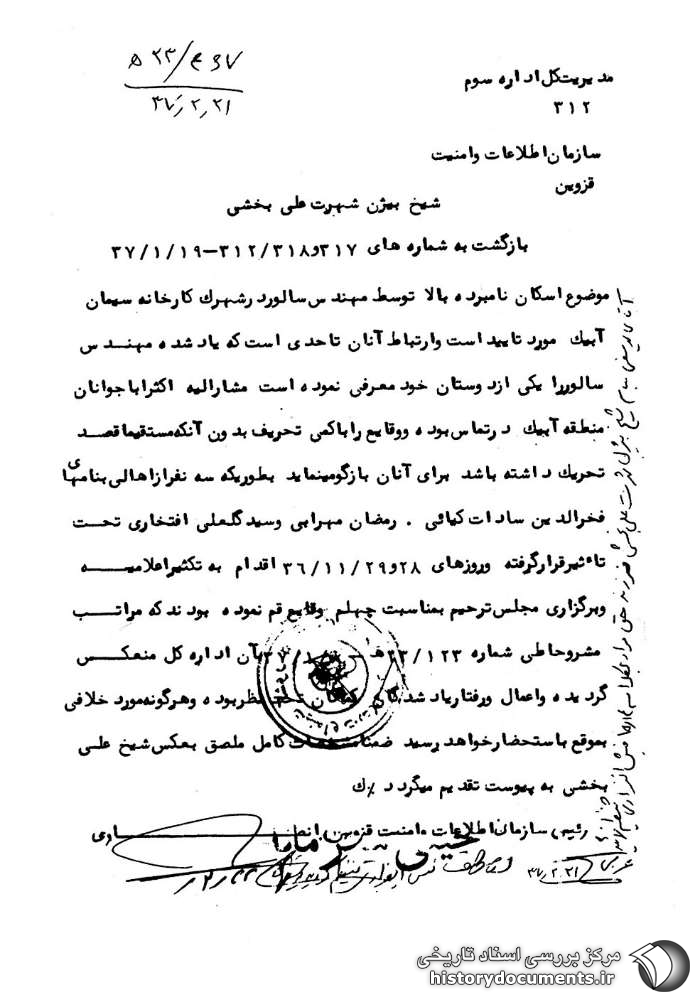 ۵ ۲۳/۴۶۷
۳۷٫۲٫۲۱
مدیریت کل اداره سوم
۳۱۲
سازمان اطلاعات وامنیت
قزوین
شیخ بیژن شهرت علی بخشی
بازگشت به شماره های ۳۱۷و۳۱۲/۳۱۸–۳۷/۱/۱۹
موضوع اسکان نامبرده بالا توسط مهندس سالور درشهرک کارخانه سیمان
آبیک مورد تایید است وارتباط آنان تاحدی است که یاد شده مهندس
سالوررا یکی ازدوستان خود معرفی نموده است مشارالیه اکثرا باجوانان
منطقه آبیک درتماس بوده ووقایع راباکمی تحریف بدون آنکه مستقیما قصد
تحریک داشته باشد برای آنان بازگو مینماید بطوریکه سه نفرازاهالی بنامهای
فخرالدین سادات کیائی . رمضان مهرابی وسیدگلعلی افتخاری تحت
تاءثیرقرارگرفته وروزهای ۲۸و۳۶/۱۱/۲۹ اقدام به تکثیراعلامیه
وبرگزاری مجلس ترحیم بمناسبت چهلم وقایع قم نموده بودند که مراتب
مشروحاطی شماره ۲۳/۱۲۳ه بآن اداره کل منعکس
گردیده واعمال ورفتاریاد شدگان کماکان تحت نظربوده وهرگونه مورد خلافی
بموقع باستحضارخواهد رسید ضمنا مشخصات کامل ملصق بعکس شیخ علی
بخشی به پیوست تقدیم میگردد ٪ک
رئیس سازمان اطلاعات وامنیت قزوین
۳۷٫۲٫۲۱
مرکز بررسی اسناد تاریخی
historydocuments.ir